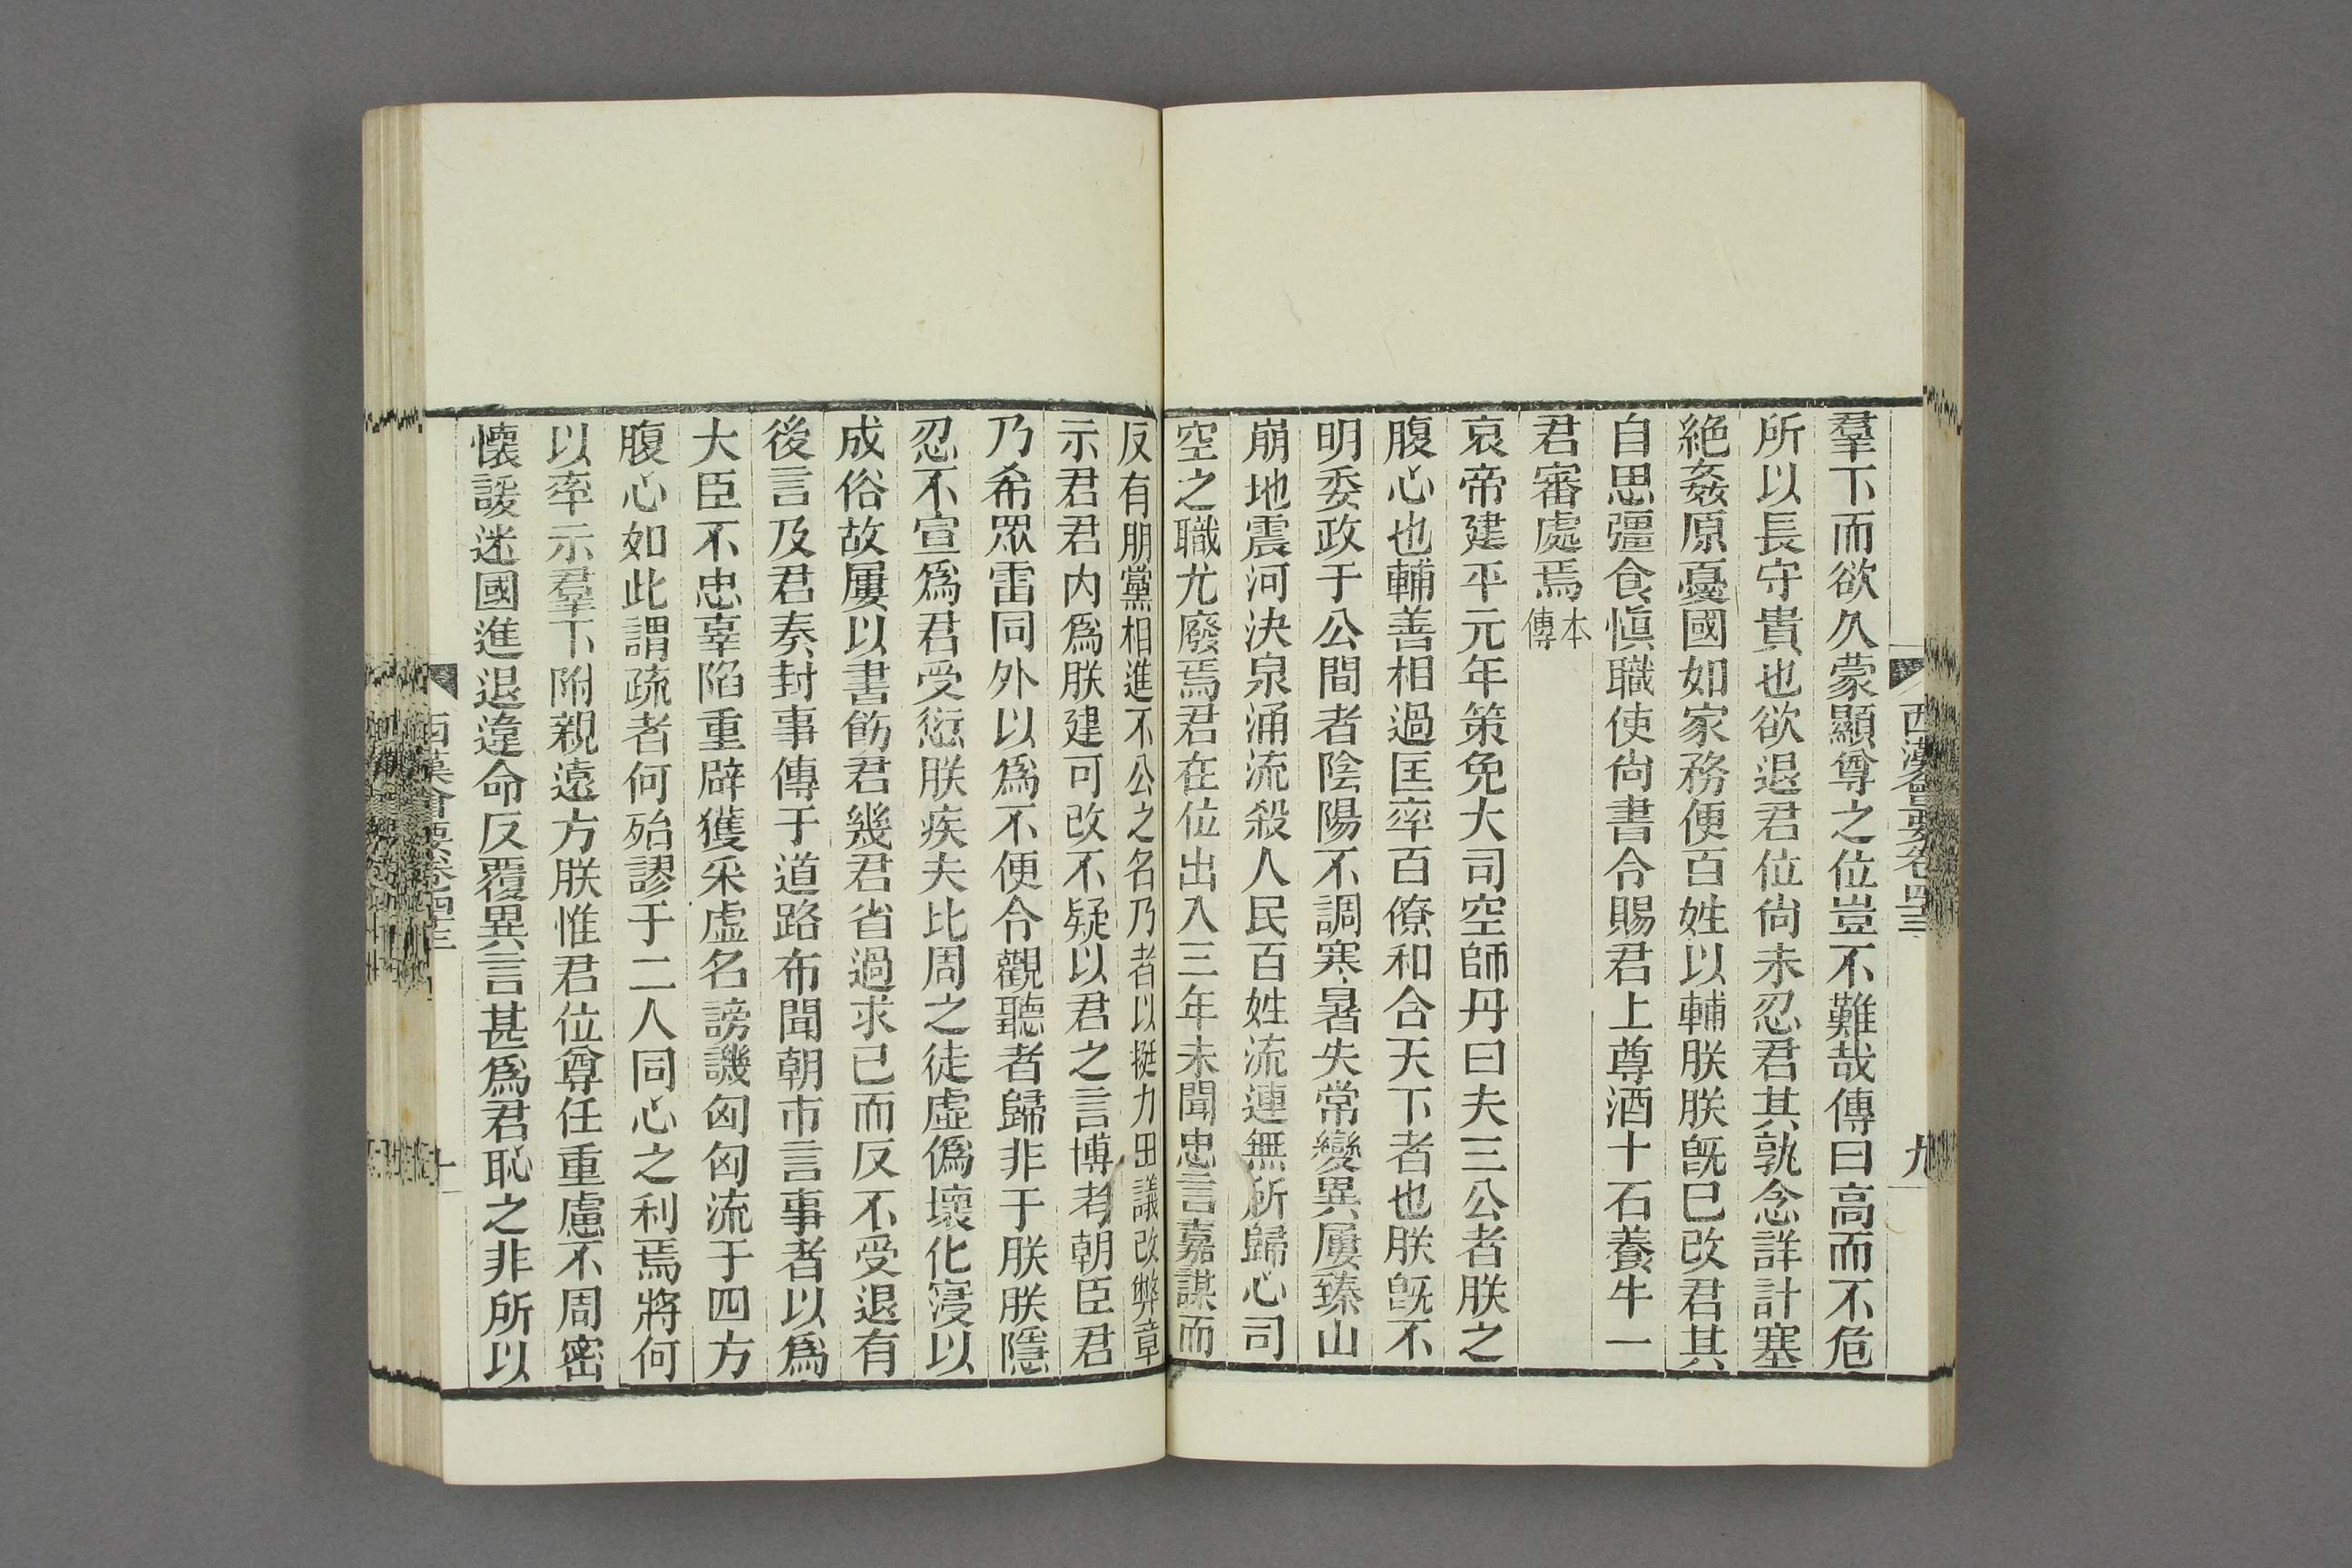 西漢會要卷四十三
九
羣下而欲久蒙顯尊之位豈不難哉傳曰高而不危
所以長守貴也欲退君位尙未忍君其孰念詳計塞
絶姦原憂國如家務便百姓以輔朕朕旣已改君其
自思彊食愼職使尙書令賜君上尊酒十石養牛一
君審處焉本傳
哀帝建平元年策免大司空師丹曰夫三公者朕之
腹心也輔善相過匡率百僚和合天下者也朕旣不
明委政于公間者陰陽不調寒暑失常變異屢臻山
崩地震河決泉涌流殺人民百姓流連無所歸心司
空之職尤廢焉君在位出入三年未聞忠言嘉謀而
反有朋黨相進不公之名乃者以挺力田議改弊章
示君君內爲朕建可改不疑以君之言博考朝臣君
乃希眾雷同外以爲不便令觀聽者歸非于朕朕隱
忍不宣爲君受愆朕疾夫比周之徒虛僞壞化寖以
成俗故屢以書飭君幾君省過求己而反不受退有
後言及君奏封事傳于道路布聞朝市言事者以爲
大臣不忠辜陷重辟獲采虛名謗譏匈匈流于四方
腹心如此謂疏者何殆謬于二人同心之利焉將何
以率示羣下附親遠方朕惟君位尊任重慮不周密
懷諼迷國進退違命反覆異言甚爲君恥之非所以
西漢會要卷四十三
十